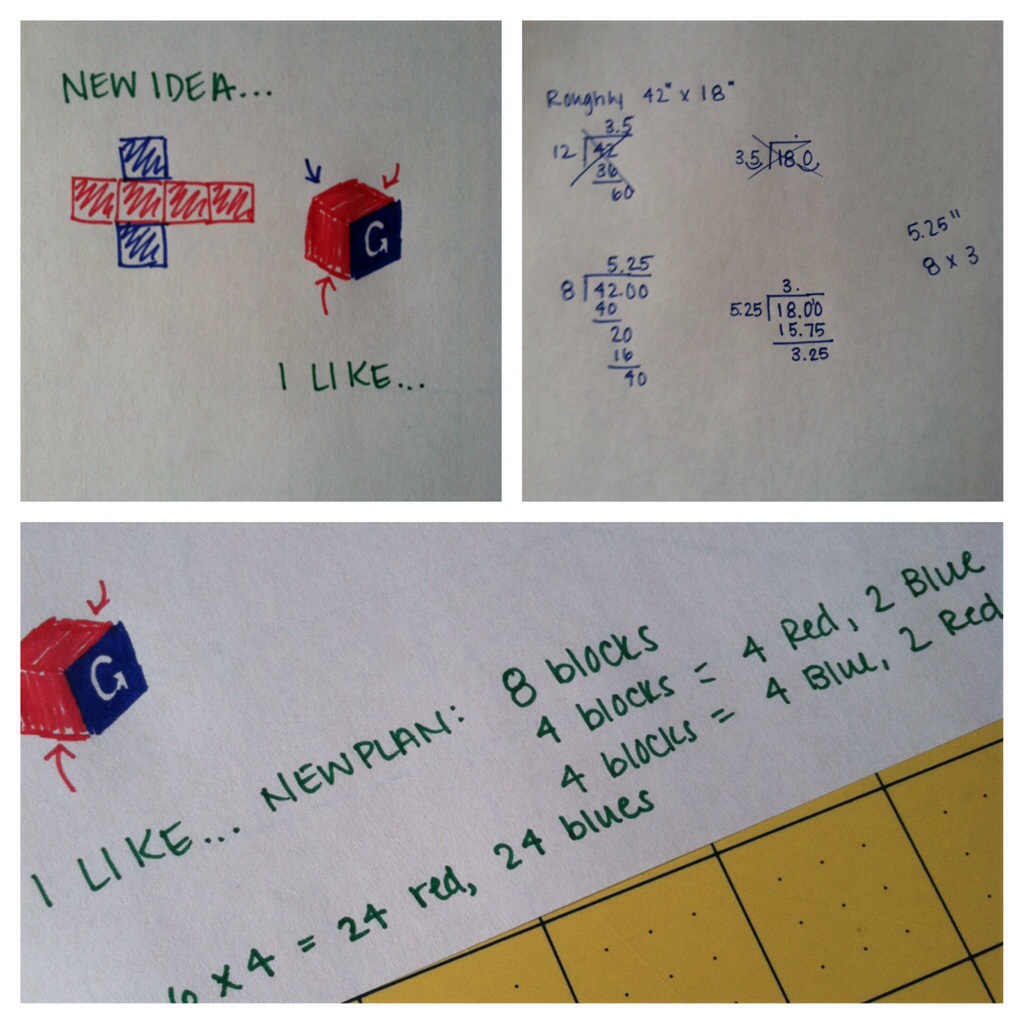 NEW IDEA...
G
I LIKE...
Roughly 42" x 18"
3.5
12 42
36
60
3.5 18.0
5.25"
8 x 3
5.25
8 42.00
40
20
16
40
3.
5.25 18.00
15.75
3.25
G
I LIKE... NEW PLAN: 8 blocks
4 blocks = 4 Red, 2 Blue
4 blocks = 4 Blue, 2 Red
6 x 4 = 24 red, 24 blues